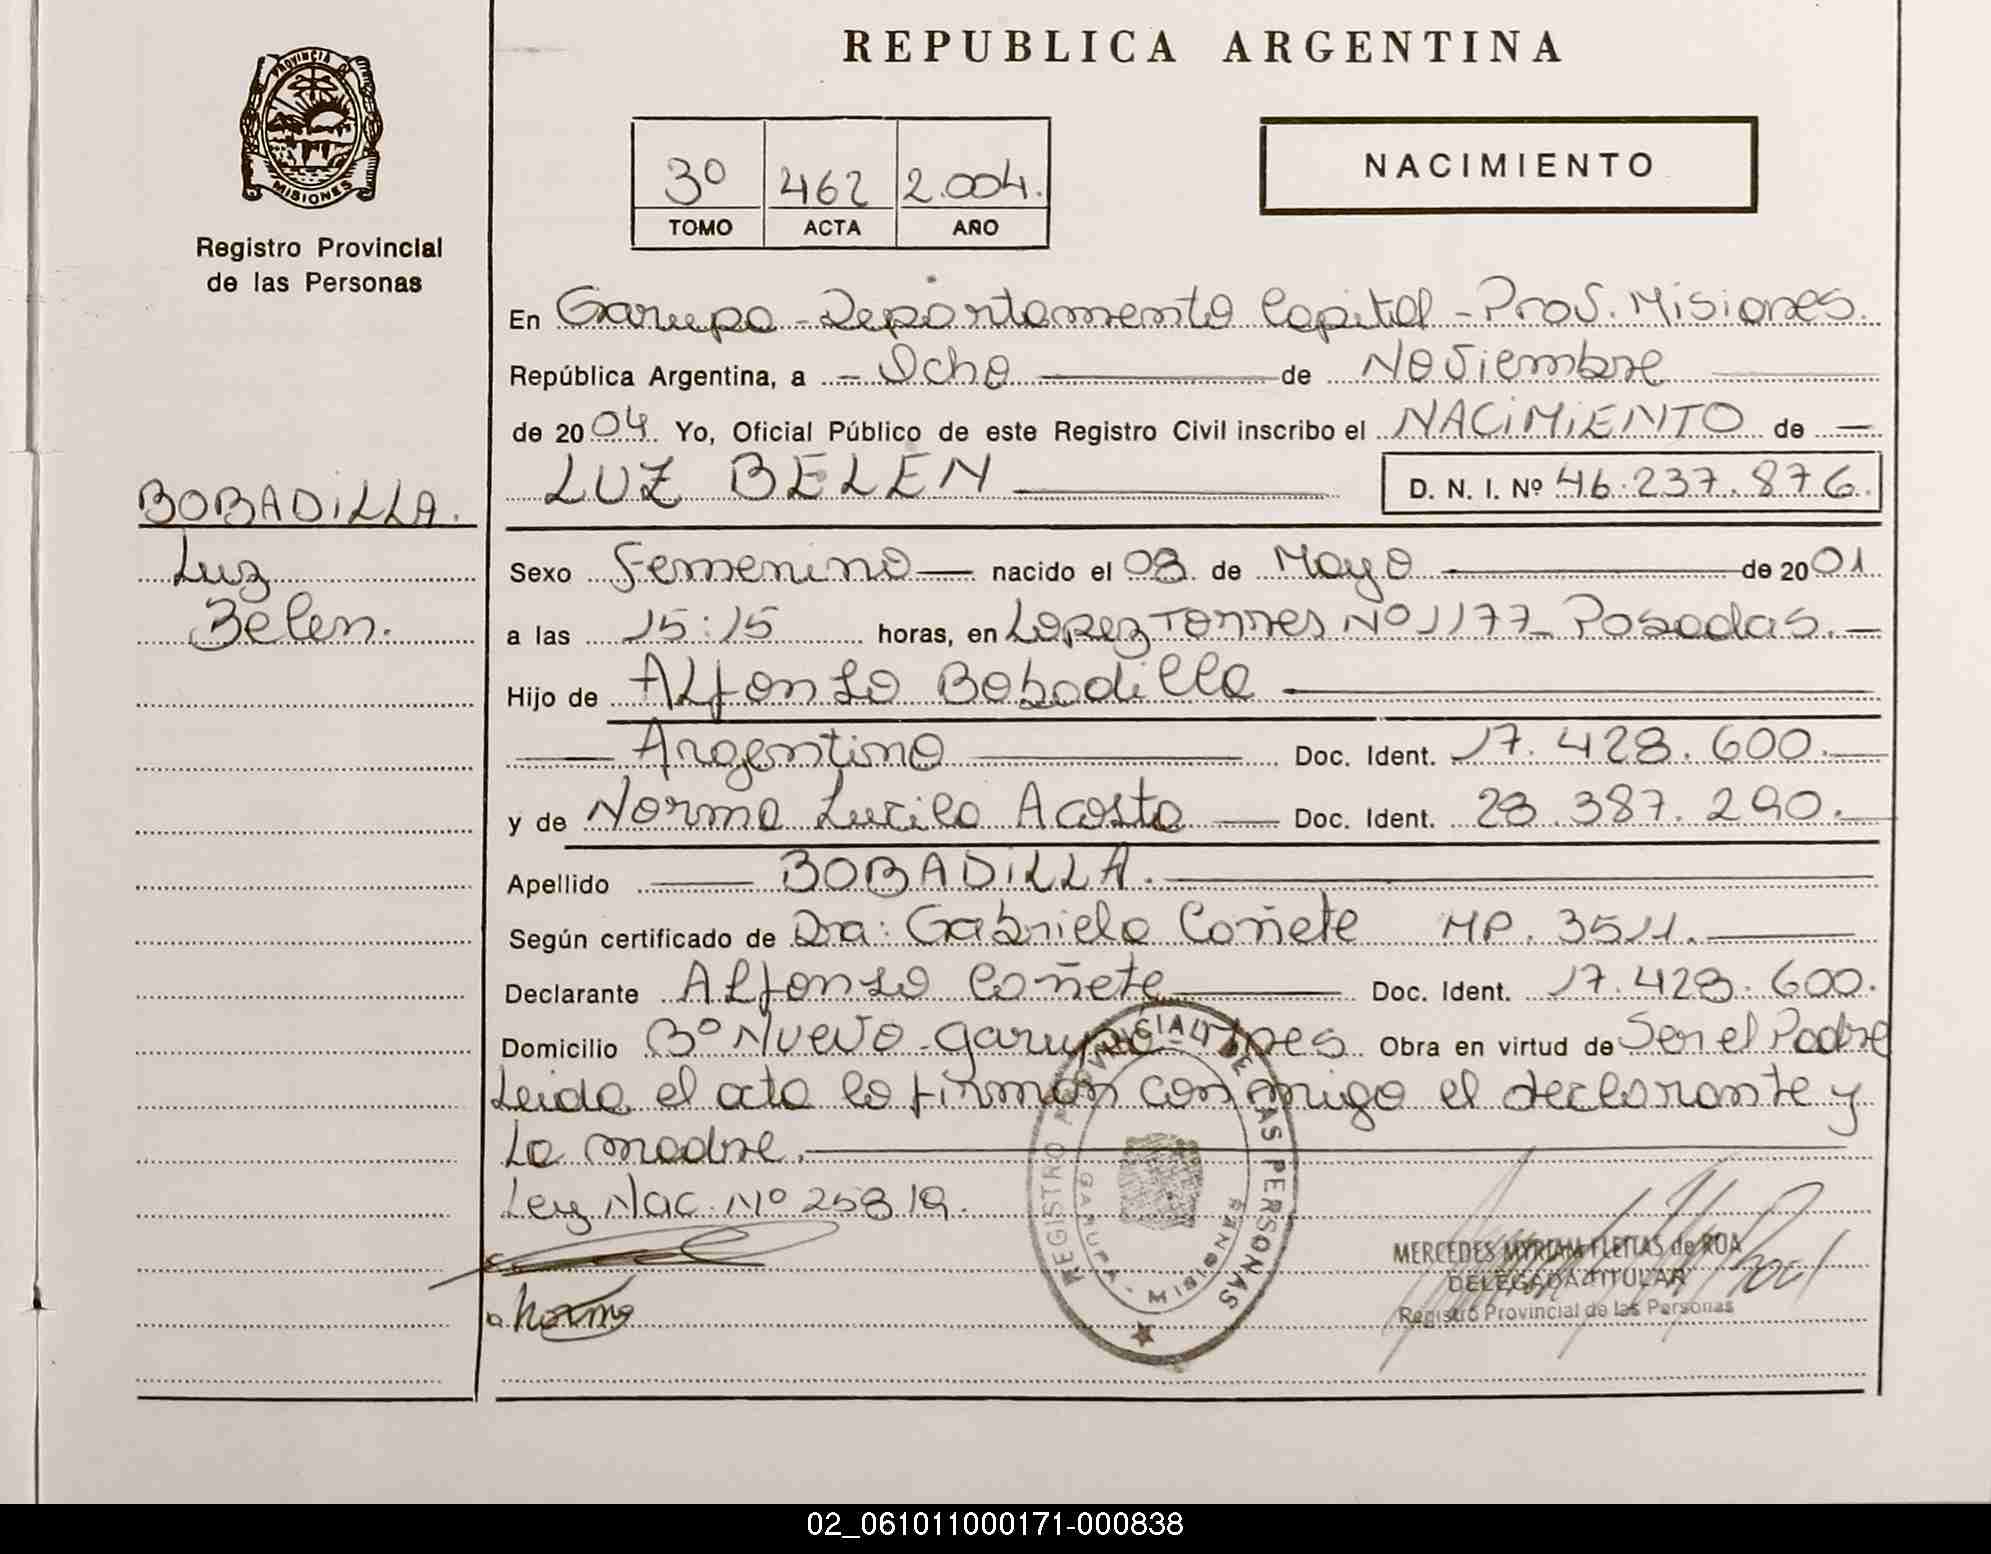 REPUBLICA ARGENTINA
PROVINCIA DE
MISIONES
Registro Provincial
de las Personas
3º 462 2.004.
TOMO ACTA AÑO
NACIMIENTO
En Garupa - Departamento Capital - Prov. Misiones.
República Argentina, a - Ocho de Noviembre
de 2004. Yo, Oficial Público de este Registro Civil inscribo el NACIMIENTO de —
LUZ BELEN D. N. I. Nº 46.237.876.
BOBADILLA.
Luz
Belen.
Sexo Femenino — nacido el 08 de Mayo — de 2001.
a las 15:15 horas, en Lopez Torres Nº 1177 - Posadas. —
Hijo de Alfonso Bobadilla —
— Argentino — Doc. Ident. 17.428.600. —
y de Norma Lucila Acosta — Doc. Ident. 28.387.290. —
Apellido — BOBADILLA. —
Según certificado de Dra: Gabriela Cañete MP. 3511. —
Declarante Alfonso Cañete — Doc. Ident. 17.428.600.
Domicilio Bº Nuevo - Garupá - Mnes. Obra en virtud de Ser el Padre
Leida el acta la firman conmigo el declarante y
La madre. —
Ley Nac. Nº 25819.
Norma
REGISTRO PROVINCIAL DE LAS PERSONAS
GARUPA - MISIONES
MERCEDES MYRIAM FLEITAS de ROA
DELEGADA TITULAR
Registro Provincial de las Personas
02_061011000171-000838